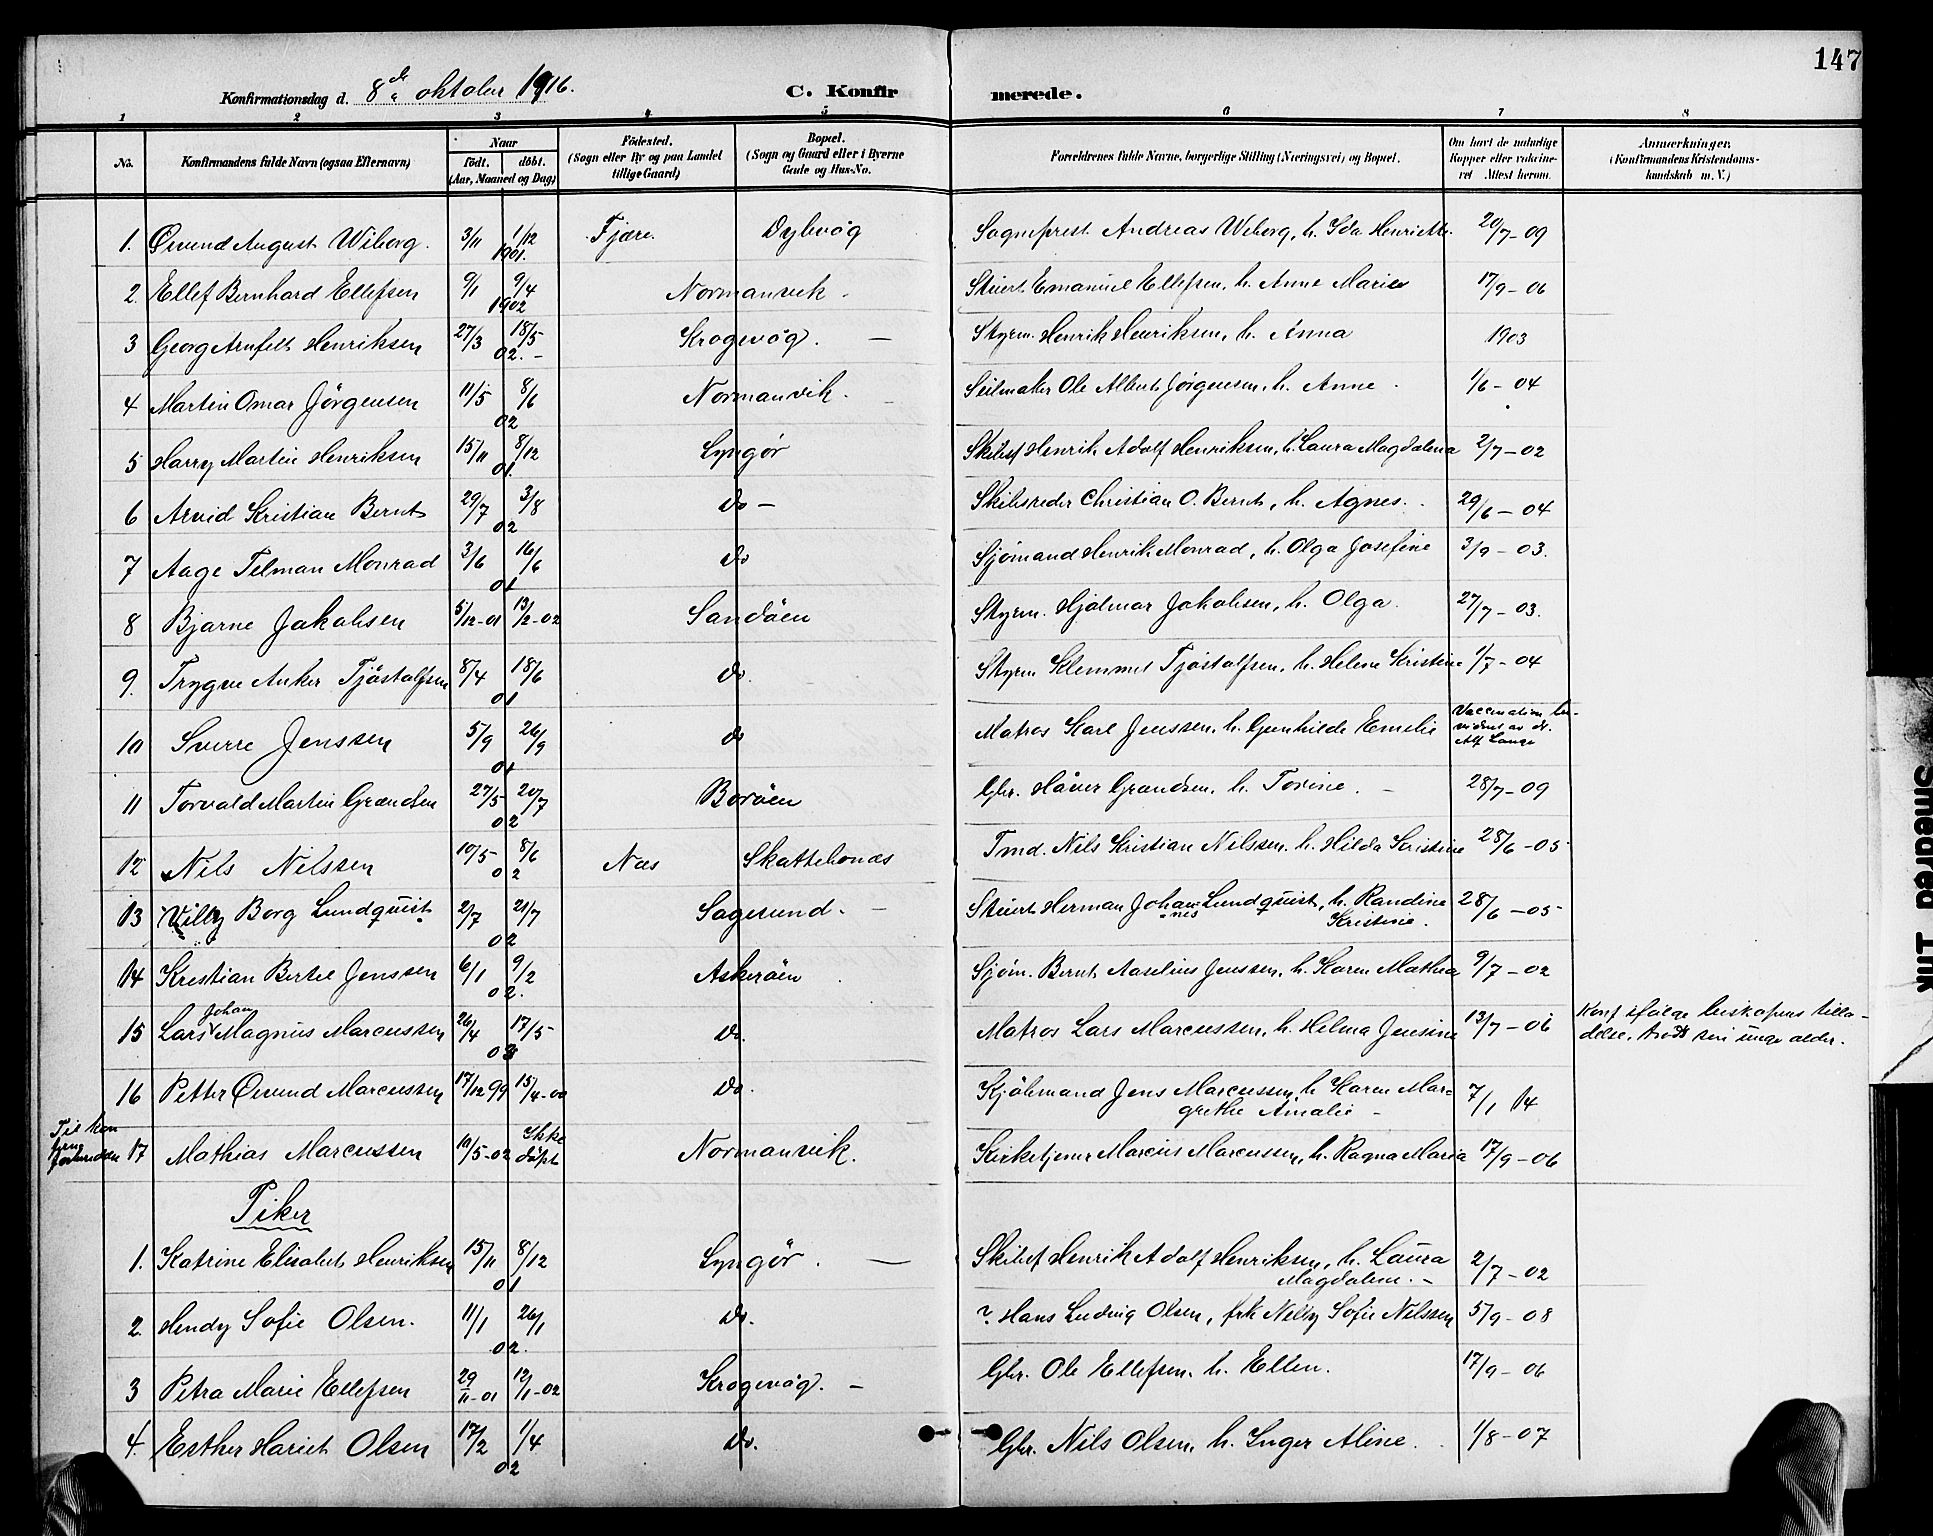 147
Konfirmationsdag d. 8de oktober 1916.
C. Konfirmerede.
1 2 3 4 5 6 7 8
No. Konfirmandens fulde Navn (ogsaa Efternavn) Naar født. døbt. (Aar, Maaned og Dag) Fødested. (Sogn eller By og paa Landet tillige Gaard) Bopæl. (Sogn og Gaard eller i Byerne Gade og Hus-No. Forældrenes fulde Navne, borgerlige Stilling (Næringsvei) og Bopæl. Om havt de naturlige Kopper eller vakcineret Attest herom. Anmærkninger. (Konfirmandens Kristendomskundskab m. V.)
1. Øivind August Wiborg. 3/11 1/12 1901. Fjære. Dybvåg Sogneprest Andreas Wiborg, h. Ida Henriette. 20/7-09
2. Ellef Bernhard Ellefsen 9/1 9/4 1902 Normanvik. Stuert Emanuel Ellefsen, h. Anne Marie 17/9-06
3 Georg Arnfelt Henriksen 27/3 18/5 02. - Krogevåg. - Styrm. Henrik Henriksen, h. Anna 1903
4 Martin Omar Jörgensen 11/5 8/6 02 Normanvik. Seilmaker Ole Albert Jörgensen, h. Anne. 1/6-04
5 Harry Martin Henriksen 15/11 8/12 01. Lyngör Skibsf Henrik Adolf Henriksen, h. Laura Magdalena 2/7-02
6 Arvid Kristian Bernt 29/7 3/8 02 Do - Skibsreder Christian O. Bernt, h. Agnes. 29/6-04
7 Aage Tilman Monrad 3/6 16/6 01 Do Sjömand Henrik Monrad, h. Olga Josefine 3/9-03.
8 Bjarne Jakobsen 5/12-01 13/2-02 Sandöen Styrm. Hjalmar Jakobsen, h. Olga. 27/7-03.
9. Trygve Anker Tjöstolfsen 8/4 18/6 01 Do. Styrm Klemmet Tjöstolfsen, h. Helene Kristine 1/7-04
10 Sverre Jenssen 5/9 26/9 01 do Matros Karl Jenssen, h. Gunhilde Emilie Vaccination be-
vidnet av dr.
Alf Lange
11 Torvald Martin Grandsen 27/5 20/7 02 Boröen Gbr. Håver Grandsen, h. Torine. - 28/7-09
12 Nils Nilssen 10/5 8/6 02 Næs Skattebonæs Tmd. Nils Kristian Nilssen. h. Hilda Kristine 28/6-05
13 Villy Borg Lundquist 2/7 21/7 02 Sagesund. - Stuert Herman Johannes Lundquist, h. Randine Kristine. 28/6-05
14 Kristian Bertel Jenssen 6/1 9/2 02. Askeröen Sjöm. Bernt Aaselius Jenssen, h. Karen Mathea 9/7-02
15 Lars Johan Magnus Marcussen 26/4 17/5 03 Do. Matros Lars Marcussen, h. Helma Jensine 13/7-06 Konf ifölge biskopens tilla-
delse, trods sin unge alder.
16 Petter Øivind Marcussen 17/12 99 15/4-00 Do. Kjöbmand Jens Marcussen, h Karen Mar-
grethe Amalie - 7/1 14
17 Mathias Marcussen 10/5-02 Ikke döpt Normanvik. Kirketjener Marcus Marcussen, h. Ragna Maria 17/9-06
Piker
1. Katrine Elisabet Henriksen 15/11 8/12 01 Lyngör. - Skibsf Henrik Adolf Henriksen, h. Laura
Magdalene. - 2/7-02
2. Hendy Sofie Olsen. 11/1 26/1 02. Do. ? Hans Ludvig Olsen, frk Nelly Sofie Nilssen 5/9-08
3 Petra Marie Ellefsen 29/11-01 12/1-02 Krogevåg. - Gbr. Ole Ellefsen. h. Ellen. 17/9-06
4. Esther Hariet Olsen 17/2 1/4 02 Do. Gbr. Nils Olsen, h. Inger Aline. 1/8-07
Smeared Ink